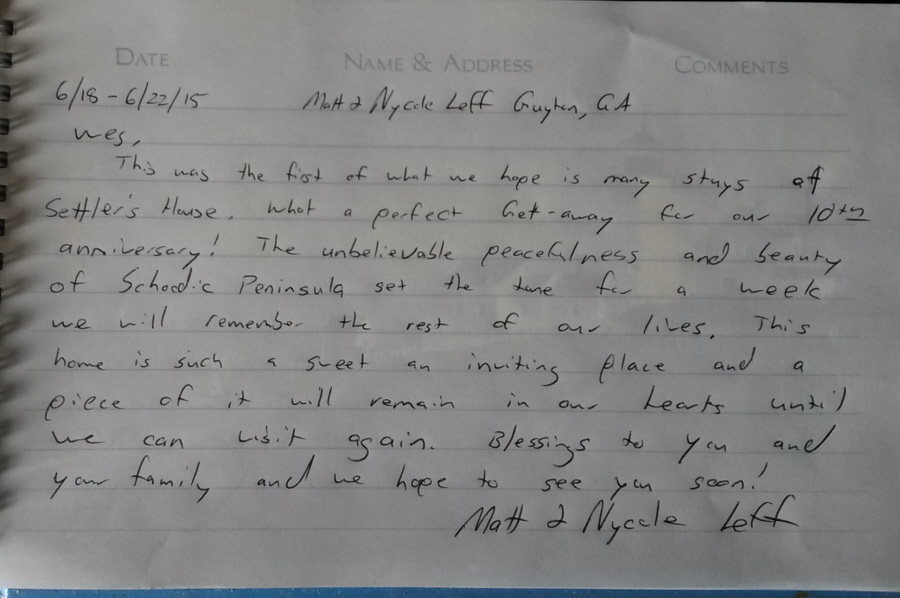 DATE NAME & ADDRESS COMMENTS
6/18 - 6/22/15 Matt & Nycole Leff Guyton, GA
Wes,
This was the first of what we hope is many stays at
Settler's House. What a perfect Get-away for our 10th
anniversary! The unbelievable peacefulness and beauty
of Schoodic Peninsula set the tone for a week
we will remember the rest of our lives. This
home is such a sweet an inviting place and a
piece of it will remain in our hearts until
we can visit again. Blessings to you and
your family and we hope to see you soon!
Matt & Nycole Leff